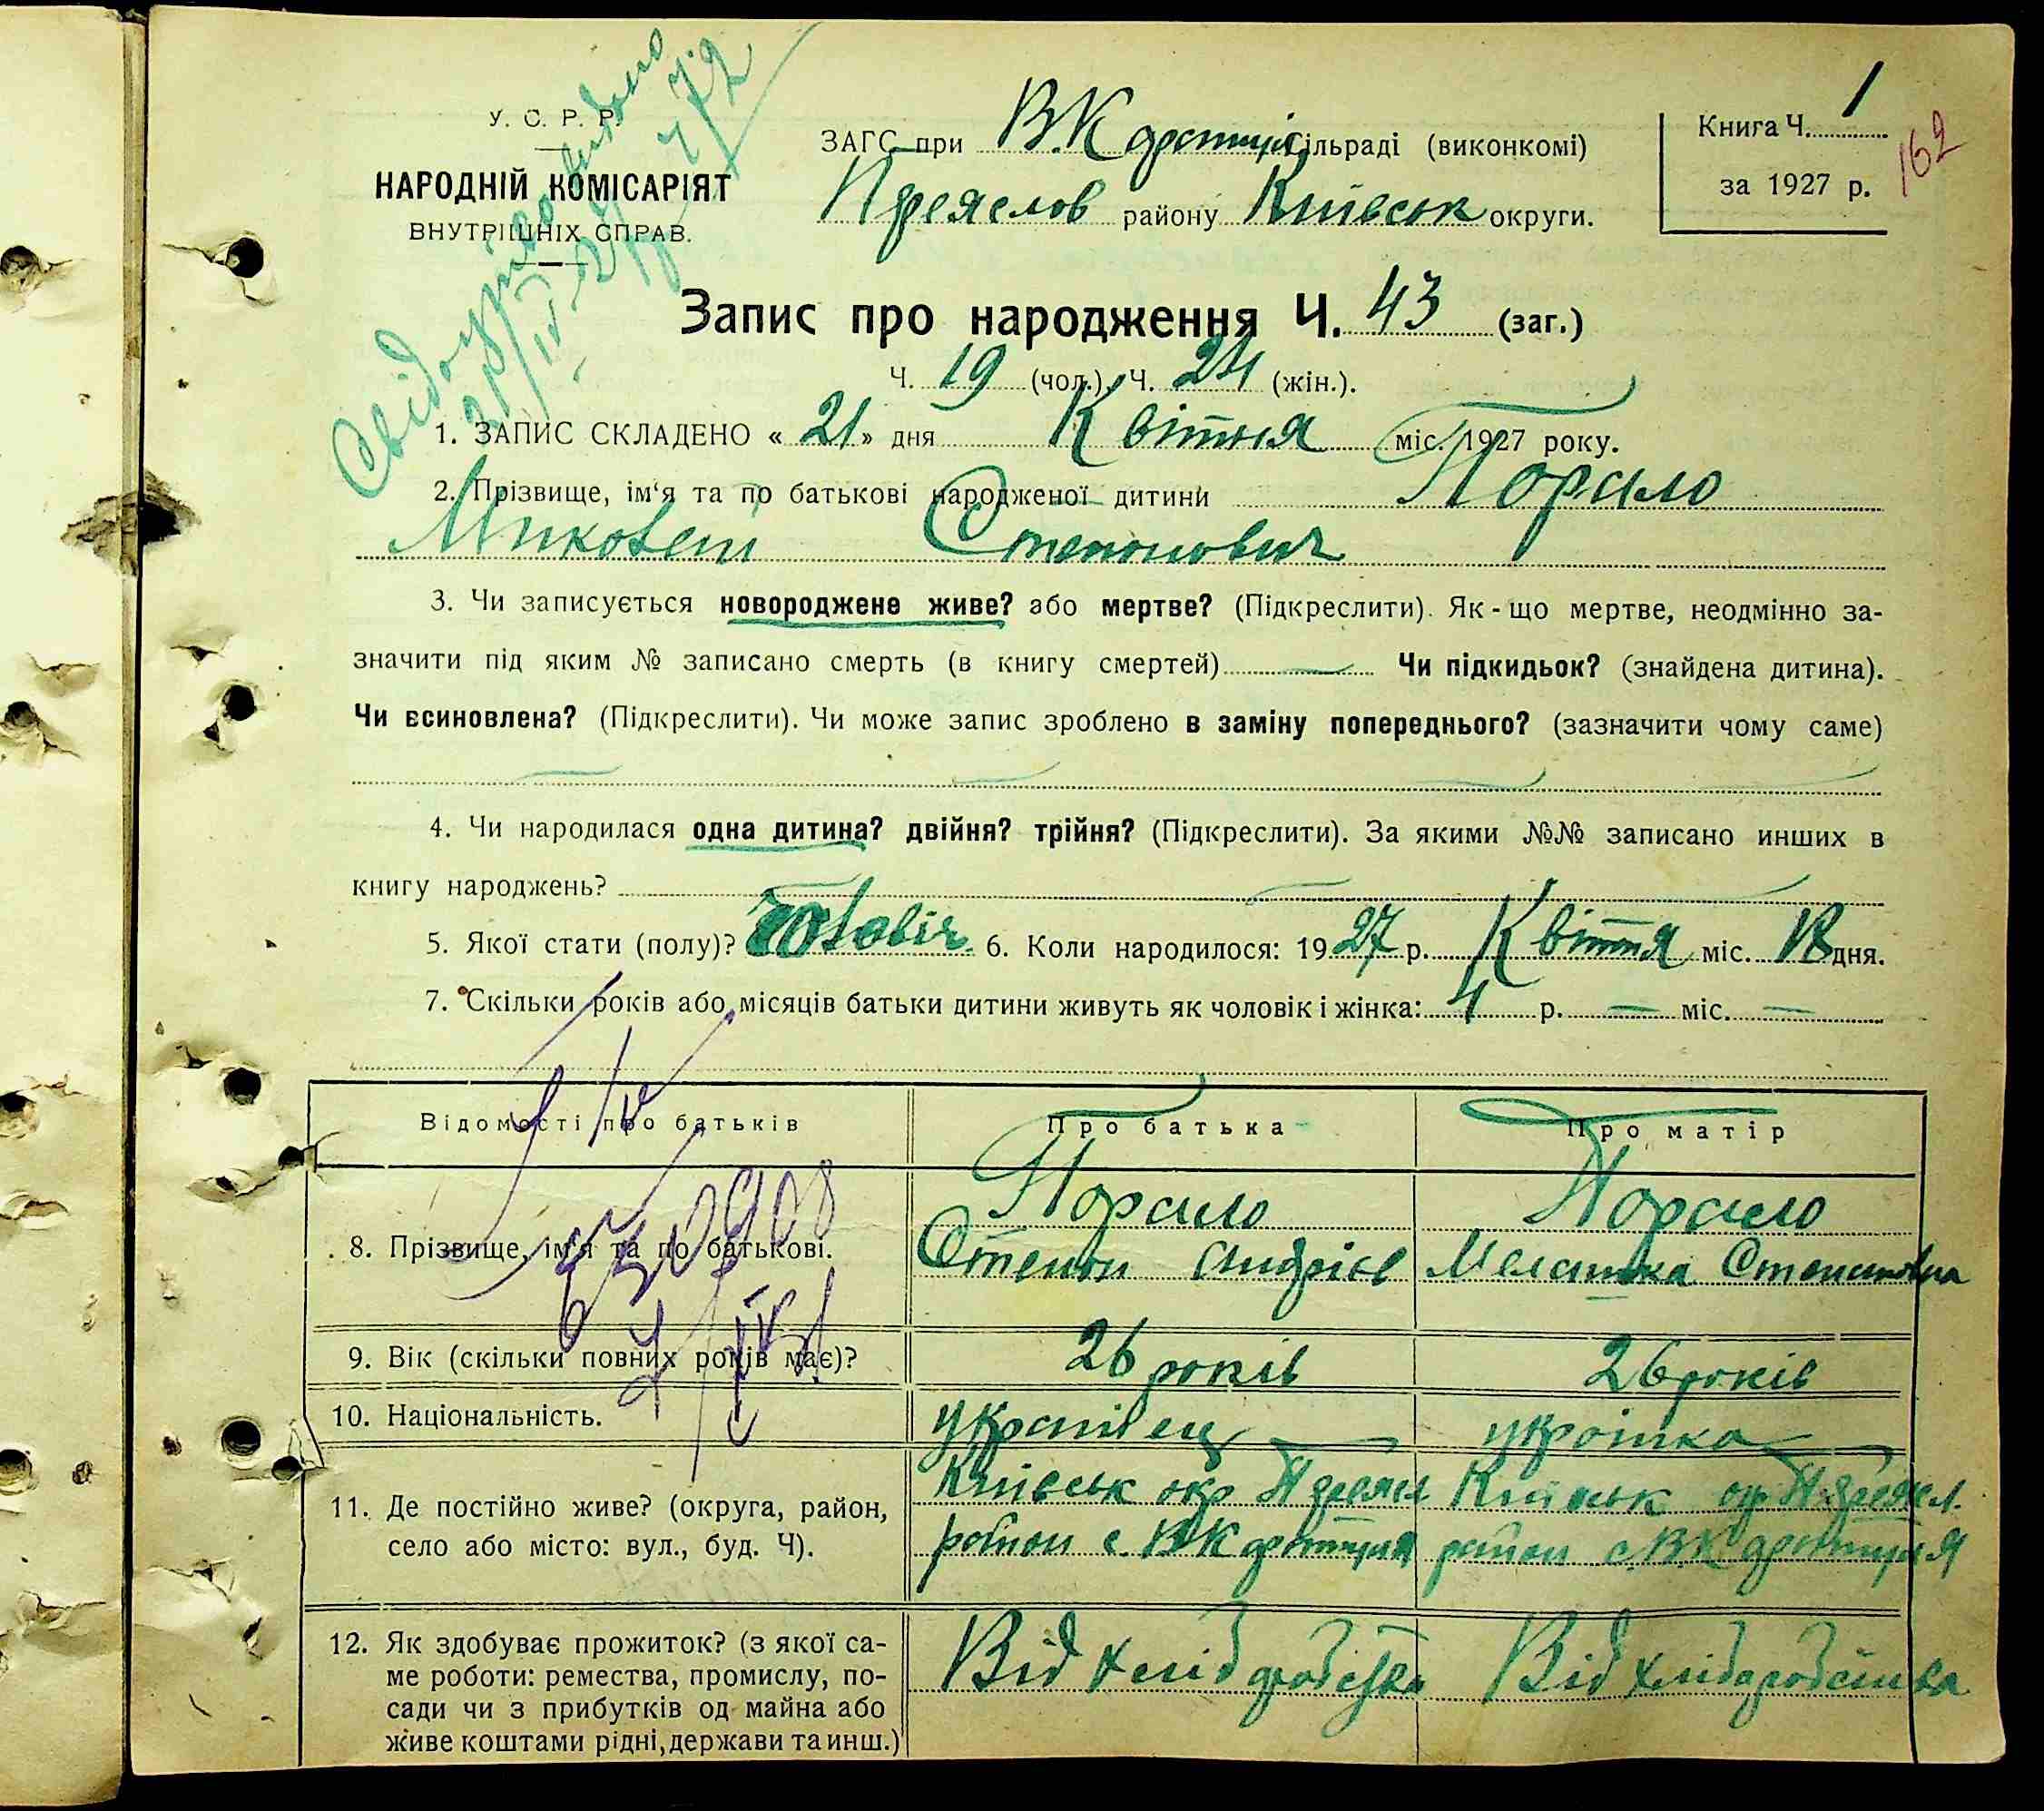 У. С. Р. Р.
НАРОДНІЙ КОМІСАРІЯТ
ВНУТРІШНІХ СПРАВ.
ЗАГС при В.Каратул сільраді (виконкомі)
Переяслов району Київськ округи.
Книга Ч. 1
за 1927 р.
162
Запис про народження Ч. 43 (заг.)
Ч. 19 (чол.) Ч. 24 (жін.).
1. ЗАПИС СКЛАДЕНО « 21 » дня Квітня міс. 1927 року.
2. Прізвище, ім‘я та по батькові народженої дитини Порало
Миколай Степонович
3. Чи записується новороджене живе? або мертве? (Підкреслити). Як-що мертве, неодмінно за-
значити під яким № записано смерть (в книгу смертей) — Чи підкидьок? (знайдена дитина).
Чи всиновлена? (Підкреслити). Чи може запис зроблено в заміну попереднього? (зазначити чому саме)
4. Чи народилася одна дитина? двійня? трійня? (Підкреслити). За якими №№ записано инших в
книгу народжень?
5. Якої стати (полу)? Чоловіч. 6. Коли народилося: 1927 р. Квітня міс. 18 дня.
7. Скільки років або місяців батьки дитини живуть як чоловік і жінка: 4 р. — міс. —
Відомості про батьків Про батька Про матір
8. Прізвище, ім'я та по батькові. Порало Порало
Степон Андрієв Мелашка Степановна
9. Вік (скільки повних років має)? 26 років 26 років
10. Національність. українец українка
11. Де постійно живе? (округа, район, Київськ окр Переясл Київськ окр Переясл.
село або місто: вул., буд. Ч). район с. район с.
12. Як здобуває прожиток? (з якої са- Від хліборобства Від хліборобства
ме роботи: ремества, промислу, по-
сади чи з прибутків од майна або
живе коштами рідні, держави та инш.)